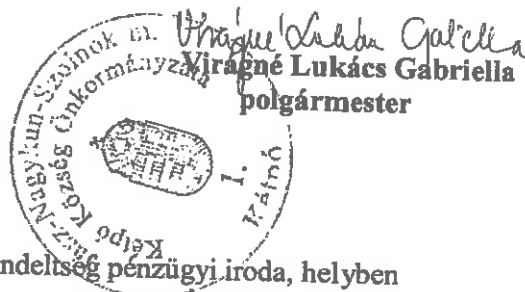 Virágné Lukács Gabriella
Virágné Lukács Gabriella
polgármester
ász-Nagykun-Szolnok m.
Kétpó Község Önkormányzata
1.
Kétpó
ndeltség pénzügyi iroda, helyben